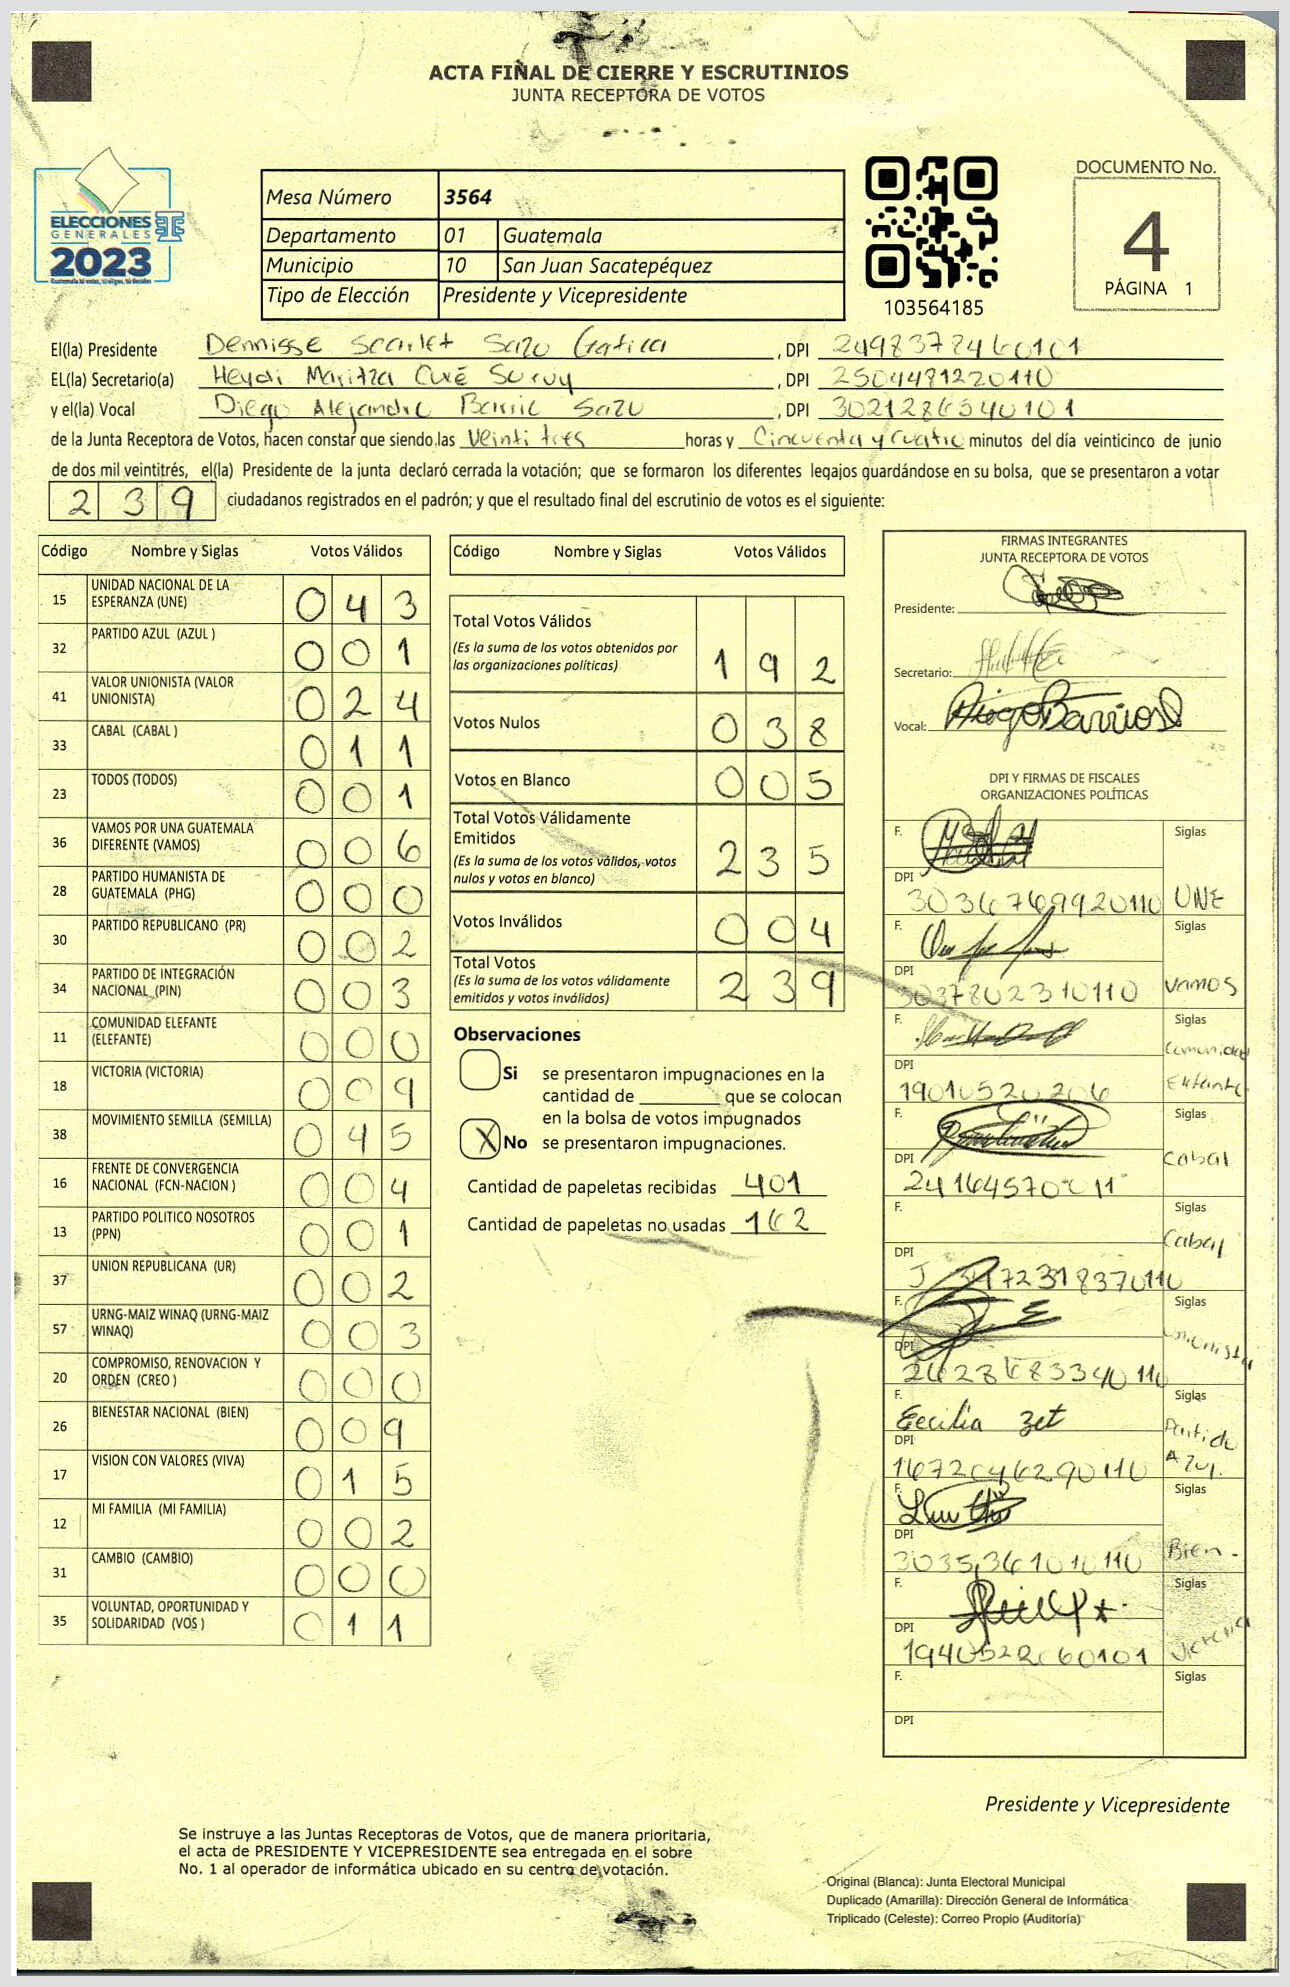 ACTA FINAL DE CIERRE Y ESCRUTINIOS
JUNTA RECEPTORA DE VOTOS
ELECCIONES
GENERALES
2023
Mesa Número 3564
Departamento 01 Guatemala
Municipio 10 San Juan Sacatepéquez
Tipo de Elección Presidente y Vicepresidente
103564185
DOCUMENTO No.
4
PÁGINA 1
El(la) Presidente Dennisse Scarlet Sazo Gatica , DPI 2498378460101
EL(la) Secretario(a) Heydi Maritza Curé Suruy , DPI 2504481220110
y el(la) Vocal Diego Alejandro Barrio Sazo , DPI 3021286540101
de la Junta Receptora de Votos, hacen constar que siendo las Veintitres horas y Cincuenta y cuatro minutos del día veinticinco de junio
de dos mil veintitrés, el(la) Presidente de la junta declaró cerrada la votación; que se formaron los diferentes legajos guardándose en su bolsa, que se presentaron a votar
239 ciudadanos registrados en el padrón; y que el resultado final del escrutinio de votos es el siguiente:
Código Nombre y Siglas Votos Válidos
15 UNIDAD NACIONAL DE LA ESPERANZA (UNE) 043
32 PARTIDO AZUL (AZUL ) 001
41 VALOR UNIONISTA (VALOR UNIONISTA) 024
33 CABAL (CABAL ) 011
23 TODOS (TODOS) 001
36 VAMOS POR UNA GUATEMALA DIFERENTE (VAMOS) 006
28 PARTIDO HUMANISTA DE GUATEMALA (PHG) 000
30 PARTIDO REPUBLICANO (PR) 002
34 PARTIDO DE INTEGRACIÓN NACIONAL (PIN) 003
11 COMUNIDAD ELEFANTE (ELEFANTE) 000
18 VICTORIA (VICTORIA) 009
38 MOVIMIENTO SEMILLA (SEMILLA) 045
16 FRENTE DE CONVERGENCIA NACIONAL (FCN-NACION ) 004
13 PARTIDO POLITICO NOSOTROS (PPN) 001
37 UNION REPUBLICANA (UR) 002
57 URNG-MAIZ WINAQ (URNG-MAIZ WINAQ) 003
20 COMPROMISO, RENOVACION Y ORDEN (CREO ) 000
26 BIENESTAR NACIONAL (BIEN) 009
17 VISION CON VALORES (VIVA) 015
12 MI FAMILIA (MI FAMILIA) 002
31 CAMBIO (CAMBIO) 000
35 VOLUNTAD, OPORTUNIDAD Y SOLIDARIDAD (VOS ) 011
Código Nombre y Siglas Votos Válidos
Total Votos Válidos 192
(Es la suma de los votos obtenidos por
las organizaciones políticas)
Votos Nulos 038
Votos en Blanco 005
Total Votos Válidamente
Emitidos 235
(Es la suma de los votos válidos, votos
nulos y votos en blanco)
Votos Inválidos 004
Total Votos 239
(Es la suma de los votos válidamente
emitidos y votos inválidos)
Observaciones
Si se presentaron impugnaciones en la
cantidad de ________ que se colocan
en la bolsa de votos impugnados
X No se presentaron impugnaciones.
Cantidad de papeletas recibidas 401
Cantidad de papeletas no usadas 162
FIRMAS INTEGRANTES
JUNTA RECEPTORA DE VOTOS
Presidente:
Secretario:
Vocal: Diego Barrios
DPI Y FIRMAS DE FISCALES
ORGANIZACIONES POLÍTICAS
F. Siglas
DPI
3036769920110 UNE
F. Siglas
DPI
3037802310110 Vamos
F. Siglas
Comunidad
DPI
1901052020 Elefante
F. Siglas
DPI Cabal
F. Siglas
Cabal
DPI
F. Siglas
Unionista
DPI
F. Siglas
Cecilia Zet Partido
DPI Azul.
1672046290110
F. Siglas
DPI
3035361010110 Bien.
F. Siglas
DPI
1940522060101 Victoria
F. Siglas
DPI
Presidente y Vicepresidente
Se instruye a las Juntas Receptoras de Votos, que de manera prioritaria,
el acta de PRESIDENTE Y VICEPRESIDENTE sea entregada en el sobre
No. 1 al operador de informática ubicado en su centro de votación.
Original (Blanca): Junta Electoral Municipal
Duplicado (Amarilla): Dirección General de Informática
Triplicado (Celeste): Correo Propio (Auditoría)